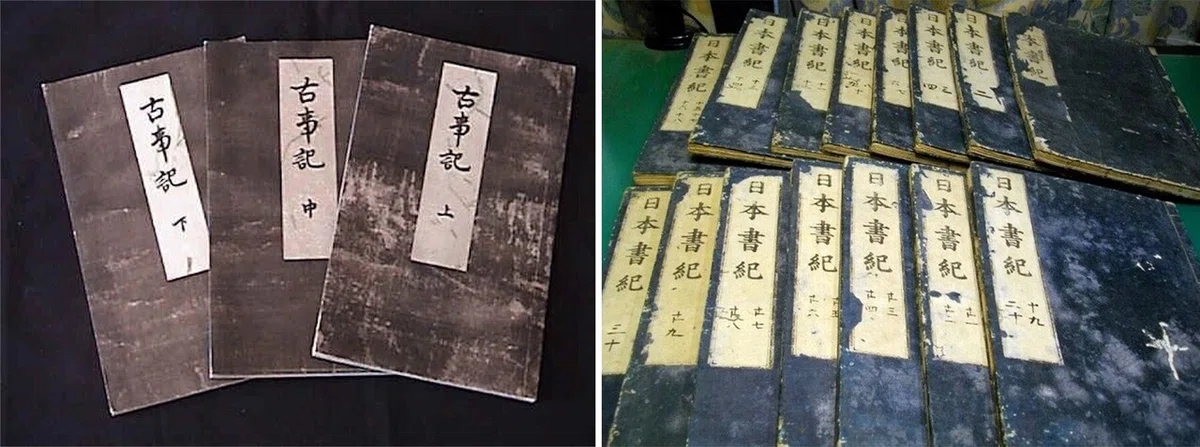 古事記 下
古事記 中
古事記 上
日本書紀
日本書紀
日本書紀
日本書紀
日本書紀
日本書紀 三
四
日本書紀 二
本書紀
日本書紀 三十
日本書紀 廿九
日本書紀 廿七
廿八
日本書紀 廿五
廿六
日本書紀 廿三
廿四
日本書紀 廿一
廿二
日本書紀 十九
二十